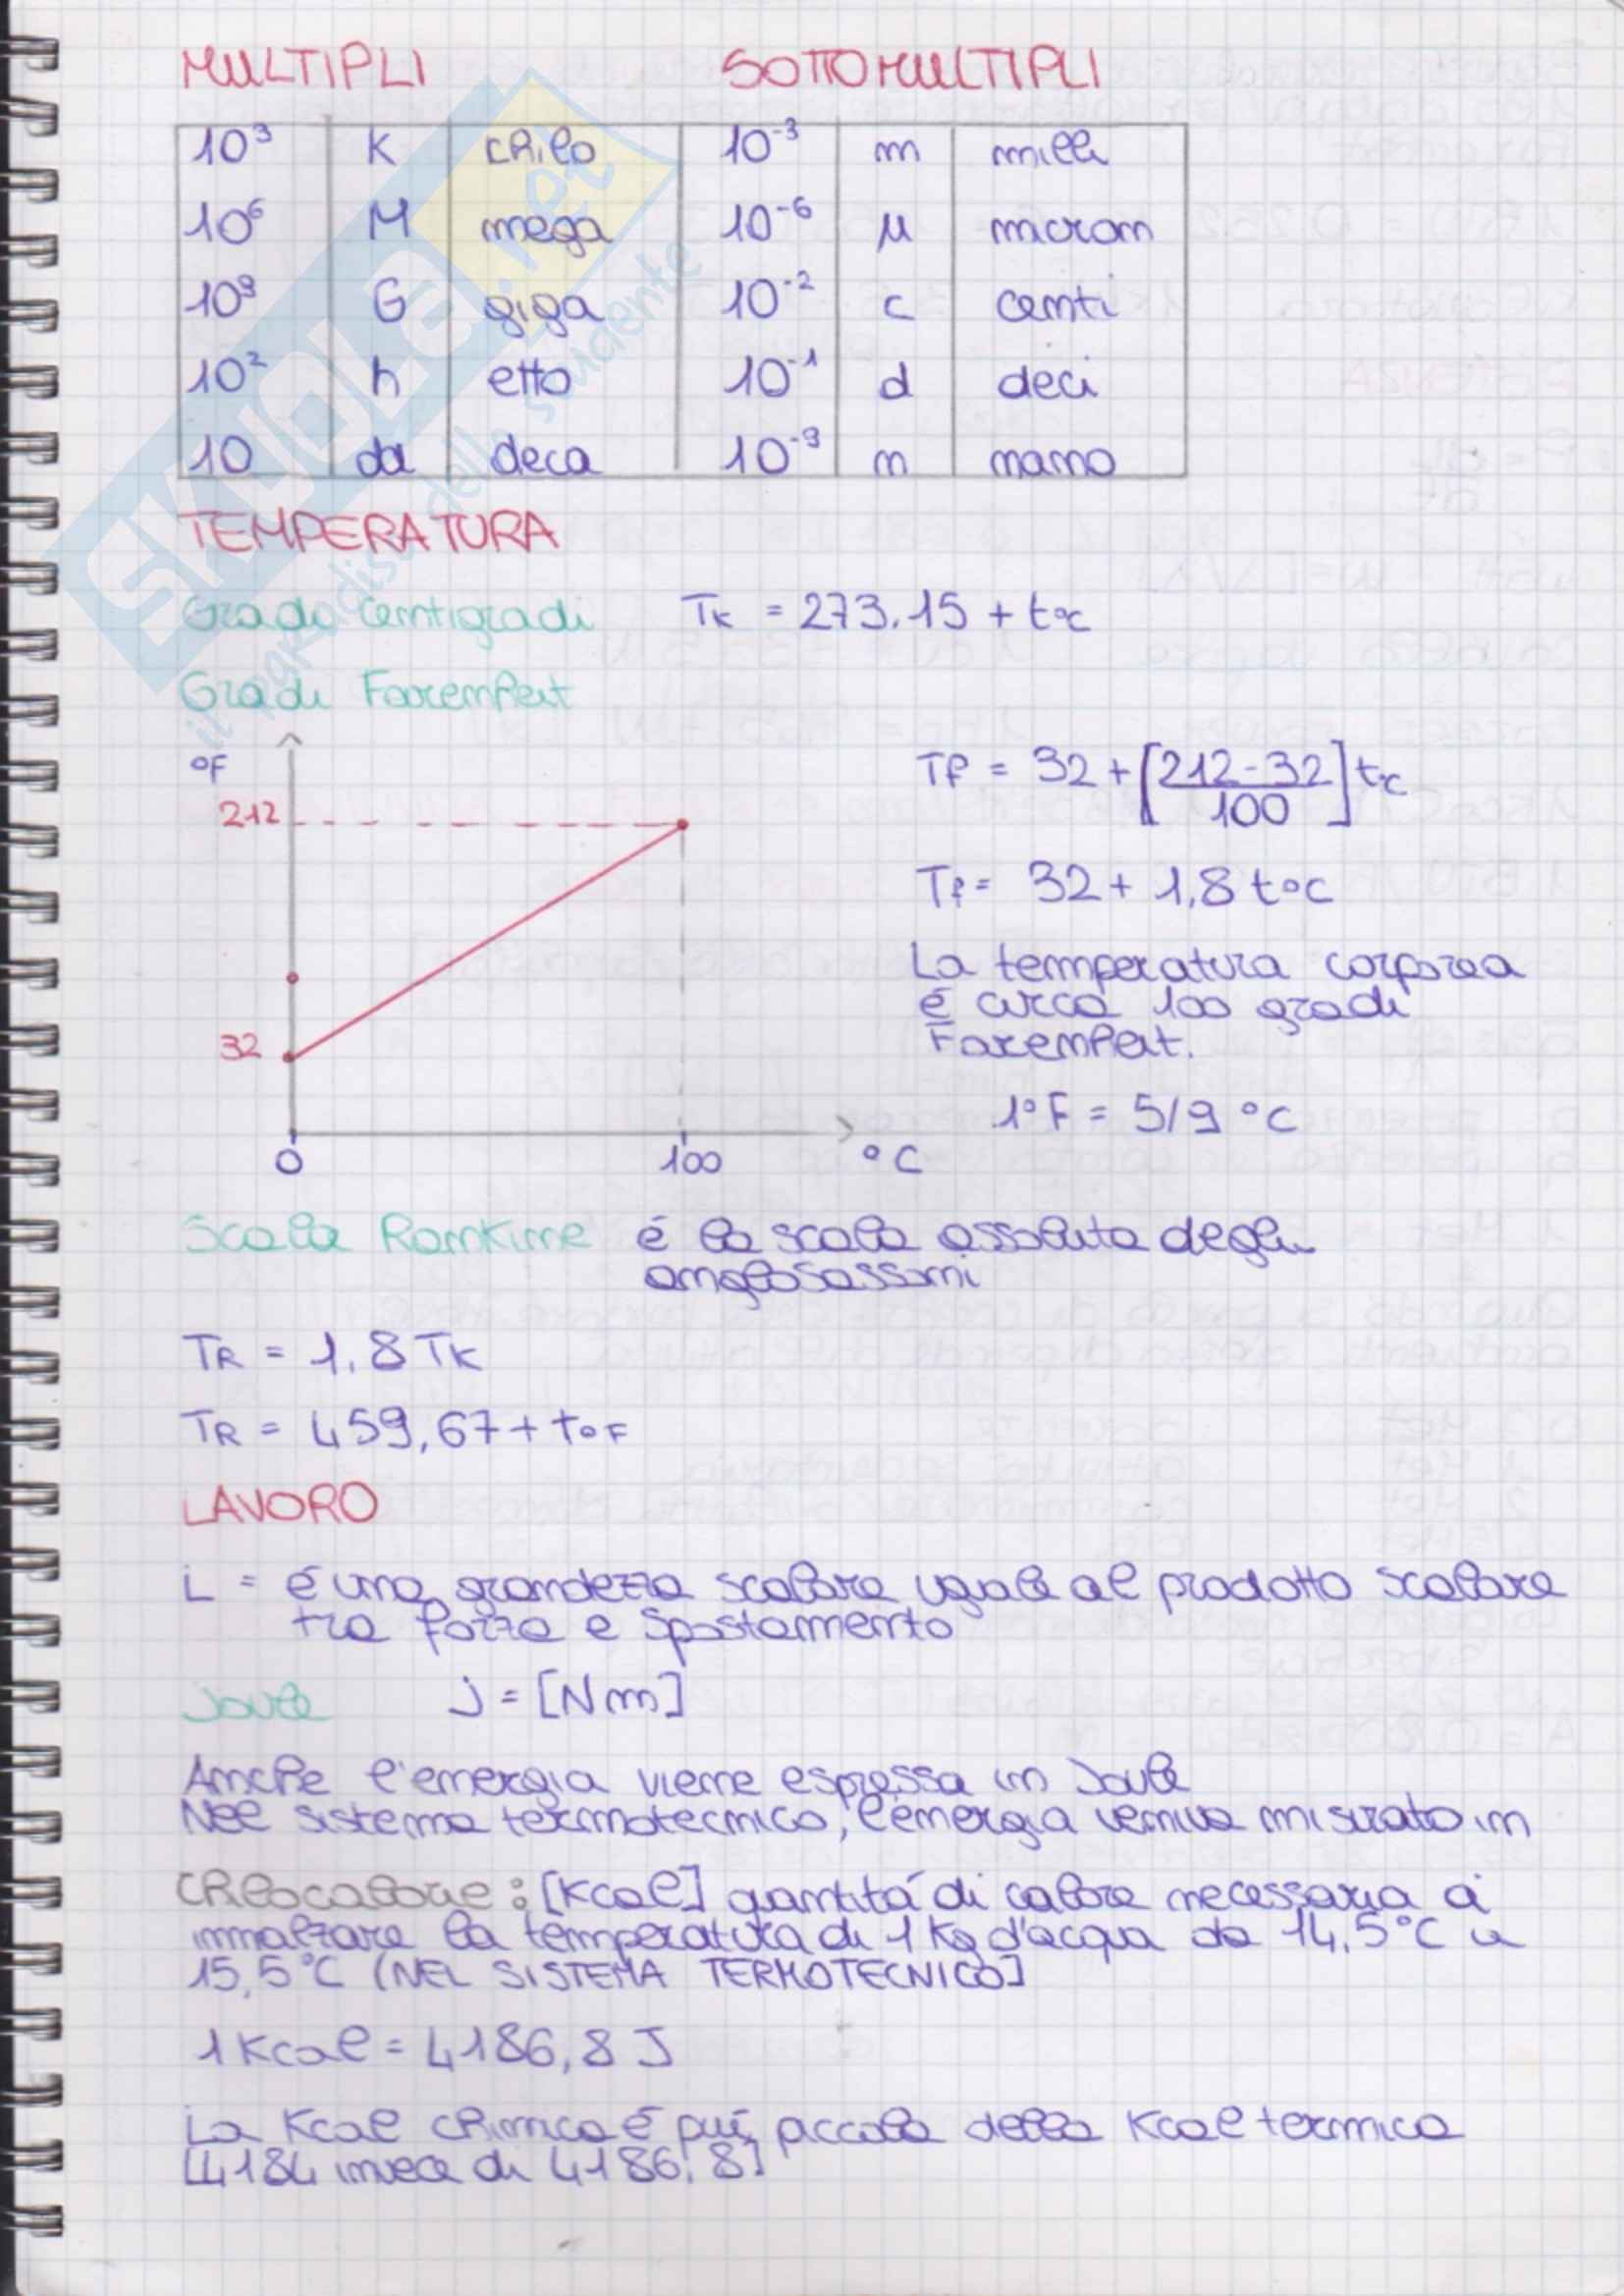 MULTIPLI SOTTOMULTIPLI
10³ K chilo 10⁻³ m milli
10⁶ M mega 10⁻⁶ μ micron
10⁹ G giga 10⁻² c centi
10² h etto 10⁻¹ d deci
10 da deca 10⁻⁹ n nano
TEMPERATURA
Gradi Centigradi TK = 273.15 + t°C
Gradi Farenheit
°F
212
32
0 100 °C
Tf = 32 + [212-32/100] t°C
Tf = 32 + 1,8 t°C
La temperatura corporea
é circa 100 gradi
Farenheit.
1°F = 5/9 °C
Scala Rankine é la scala assoluta degli
anglosassoni
TR = 1,8 TK
TR = 459,67 + t°F
LAVORO
L = é una grandezza scalare uguale al prodotto scalare
tra forza e spostamento
Joule J = [Nm]
Anche l'energia viene espressa in Joule
Nel sistema termotecnico, l'energia veniva misurato in
chilocalorie: [Kcal] quantitá di calore necessaria a
innalzare la temperatura di 1 Kg d'acqua da 14,5°C a
15,5°C (NEL SISTEMA TERMOTECNICO]
1 Kcal = 4186,8 J
La Kcal chimica é piú piccola della Kcal termica
[4184 invece di 4186,8]
SKUOLA.net
il paradiso dello studente